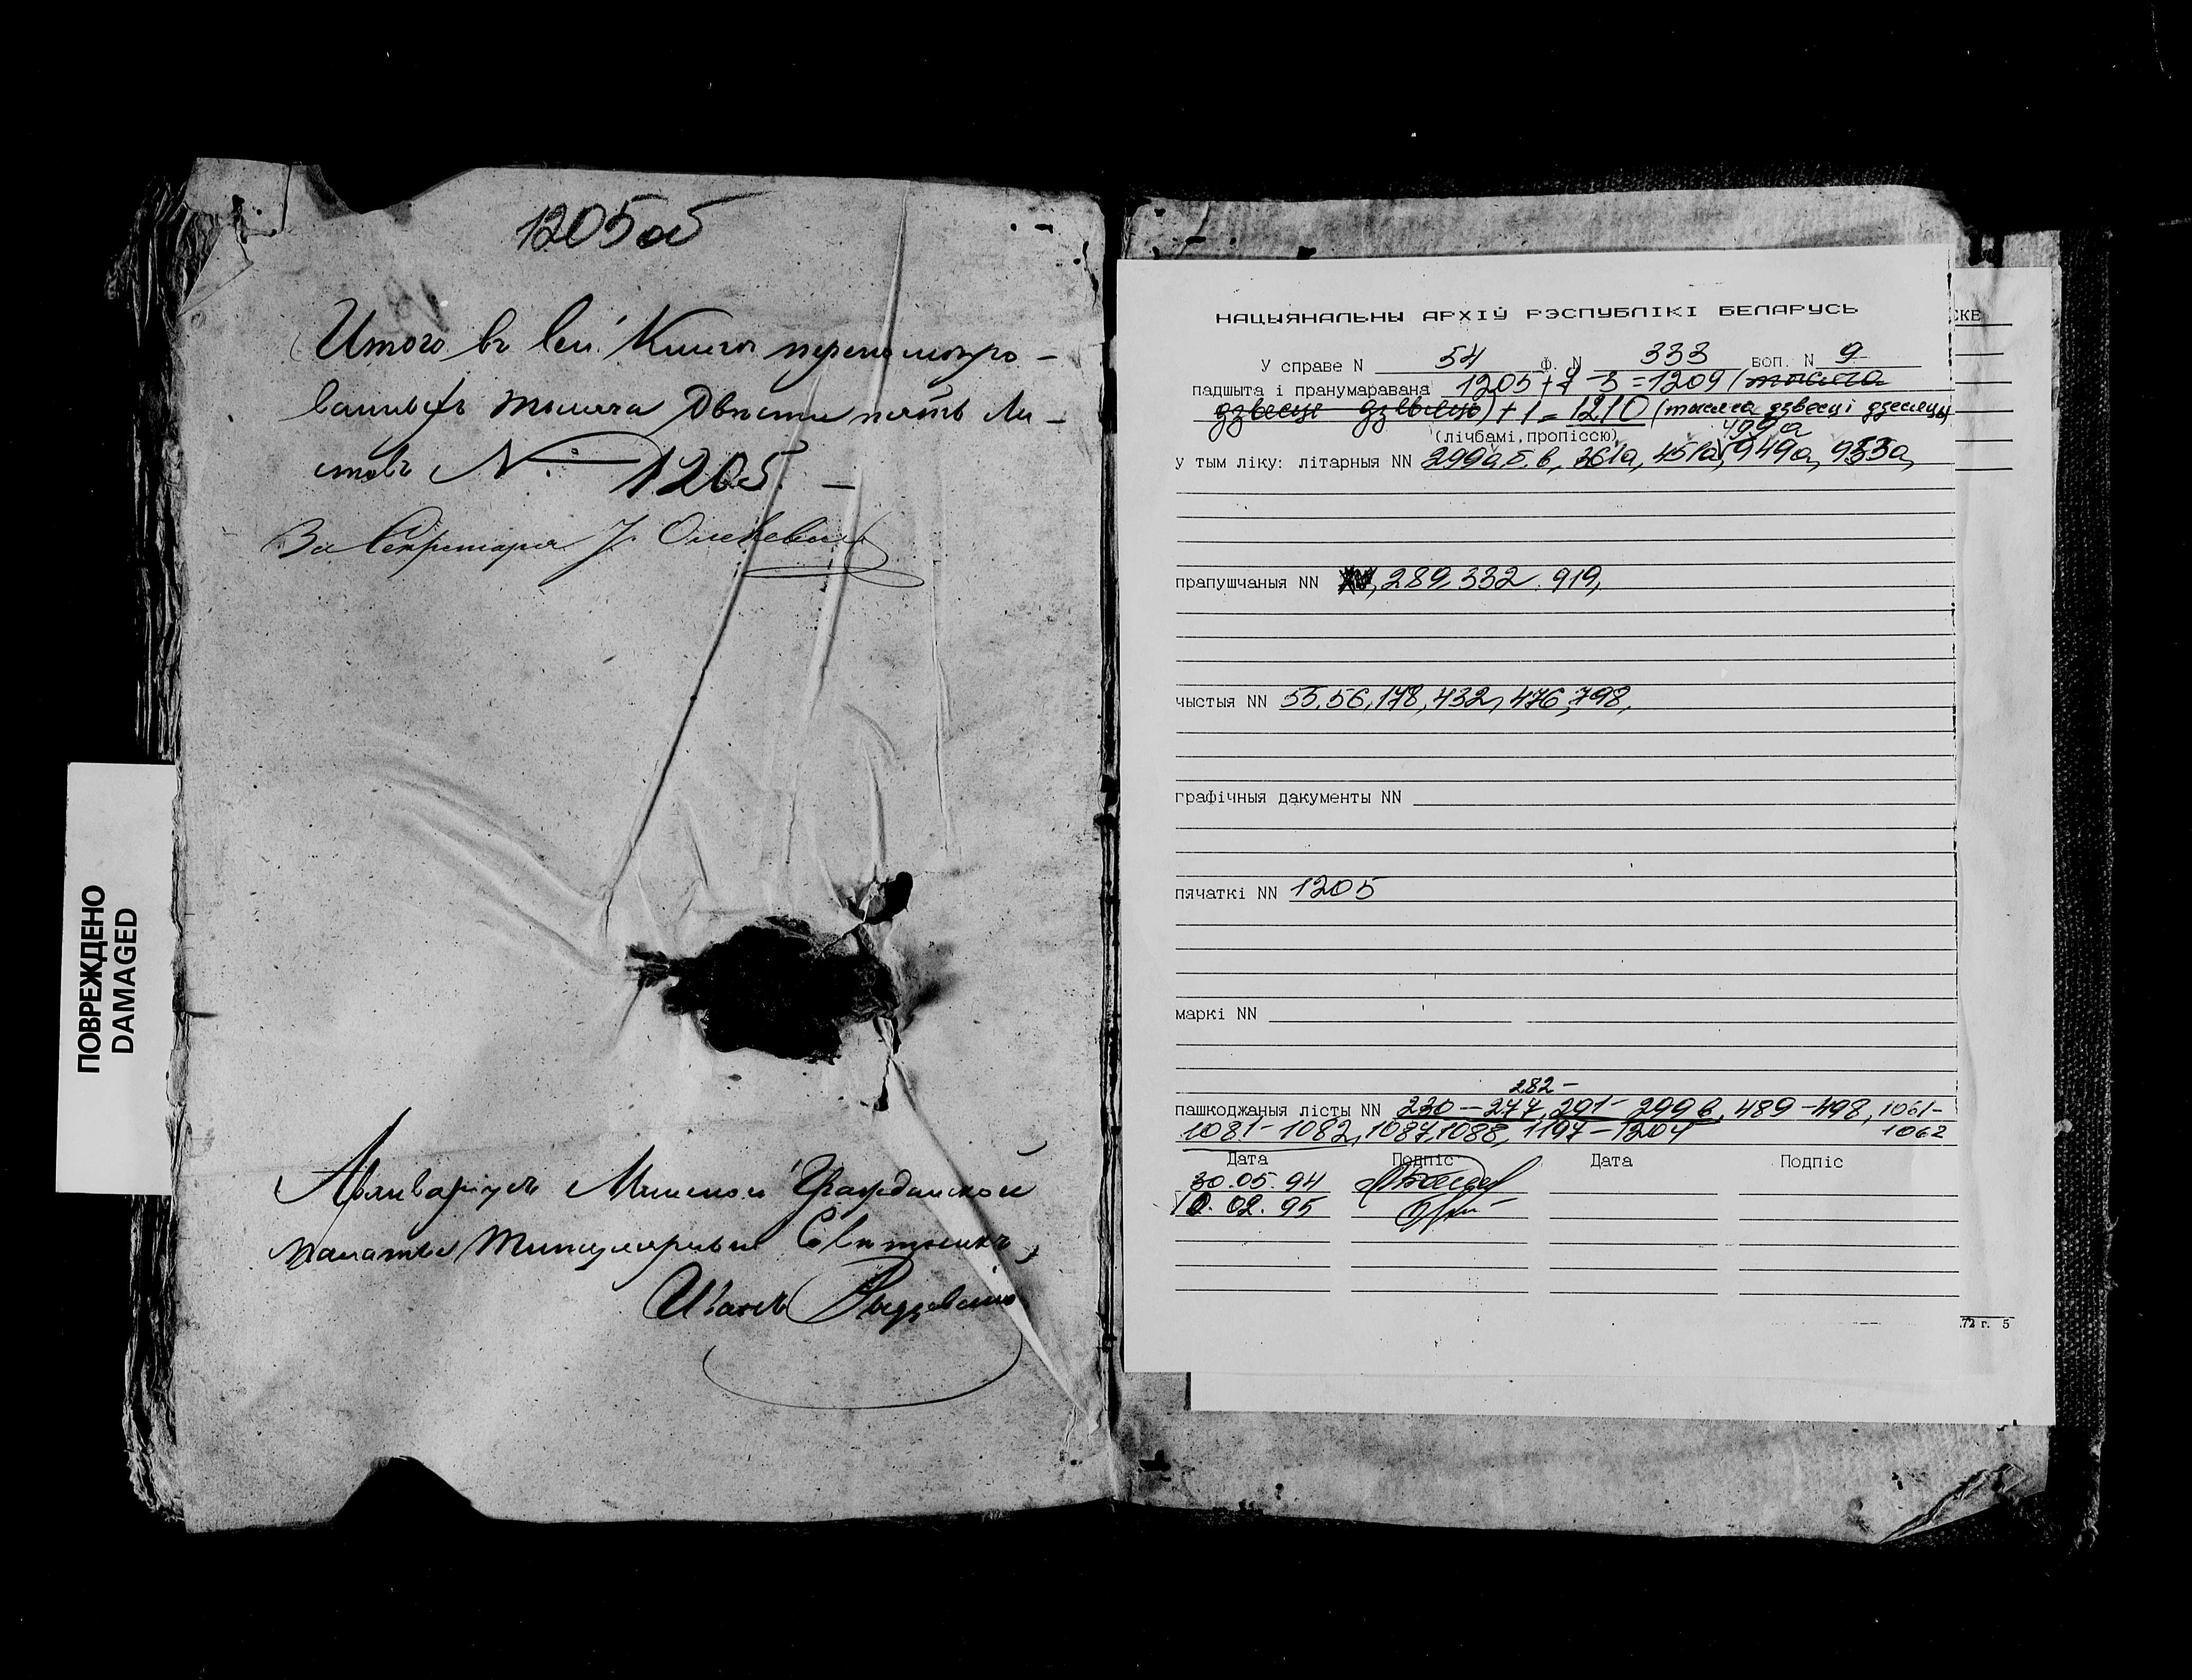 1205об
Итого въ сей Книге перенумеро-
ванныхъ тысяча двѣсти пять ли-
стовъ N. 1205. —
За Секретаря
Архиваріусъ Минской Гражданской
палаты Титулярный Совѣтникъ
Иванъ
ПОВРЕЖДЕНО
DAMAGED
НАЦЫЯНАЛЬНЫ АРХІЎ РЭСПУБЛІКІ БЕЛАРУСЬ
У справе N 54 Ф. N 333 воп. N 9
падшыта і пранумаравана 1205+7-3=1209 (тысяча
дзвесці дзевяць) +1=1210 (тысяча дзвесці дзесяць
(лічбамі, пропіссю)
499а
у тым ліку: літарныя NN 299а,б,в, 361а, 451а, 949а, 933а,
прапушчаныя NN 289, 332, 919,
чыстыя NN 55, 56, 178, 432, 476, 798,
графічныя дакументы NN
пячаткі NN 1205
маркі NN
282-
пашкоджаныя лісты NN 230-277, 291-299в, 489-498, 1061-
1081-1082, 1087, 1088, 1197-1204 1062
Дата Подпіс Дата Подпіс
30.05.94
10.02.95
СКЕ
72 г. 5